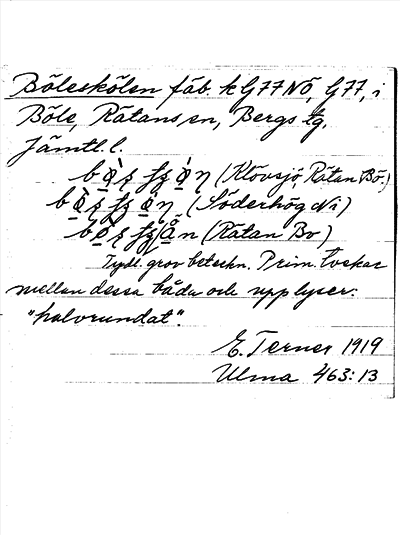 Böleskölen fäb. k G77 NÖ, G77, i
Böle, Rätans sn, Bergs tg,
Jämtl. l.
(Klövsjö, Rätan Bö.)
(Söderhög Ni)
(Rätan Bo)
Tydl. grov beteckn. Prim. tvekar
mellan dessa båda och upplyser:
"halvrundat".
E. Terner 1919
Ulma 463:13